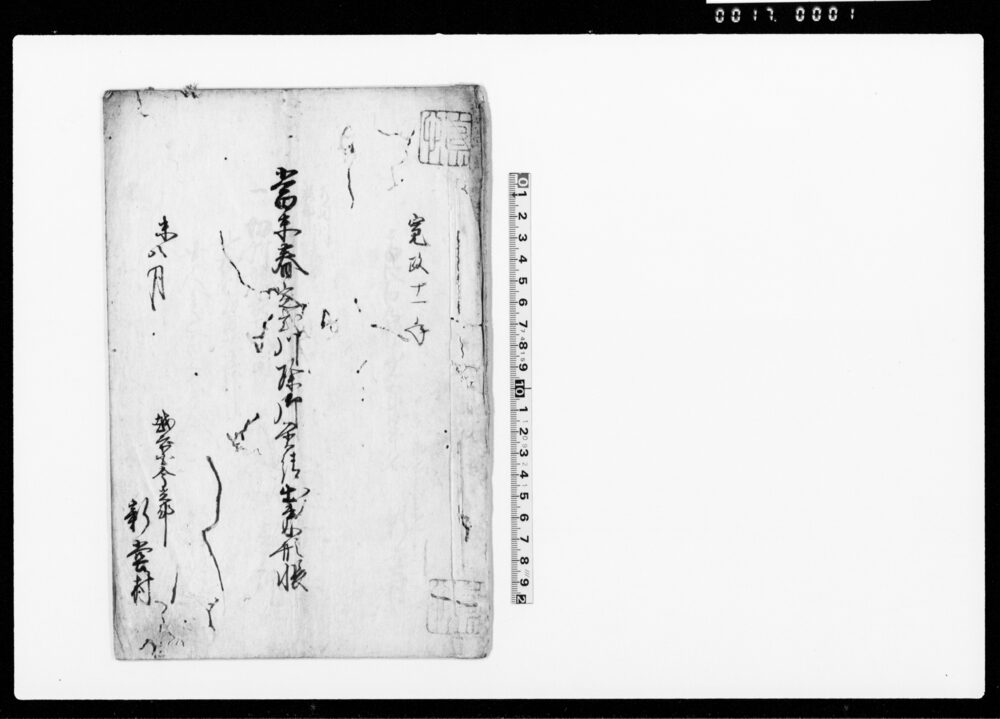 0017. 0001
寛政十一年
當未春定式川除御普請出来形帳
未八月
越後国今立郡
新堂村
0 1 2 3 4 5 6 7 8 9 10 1 2 3 4 5 6 7 8 9 2